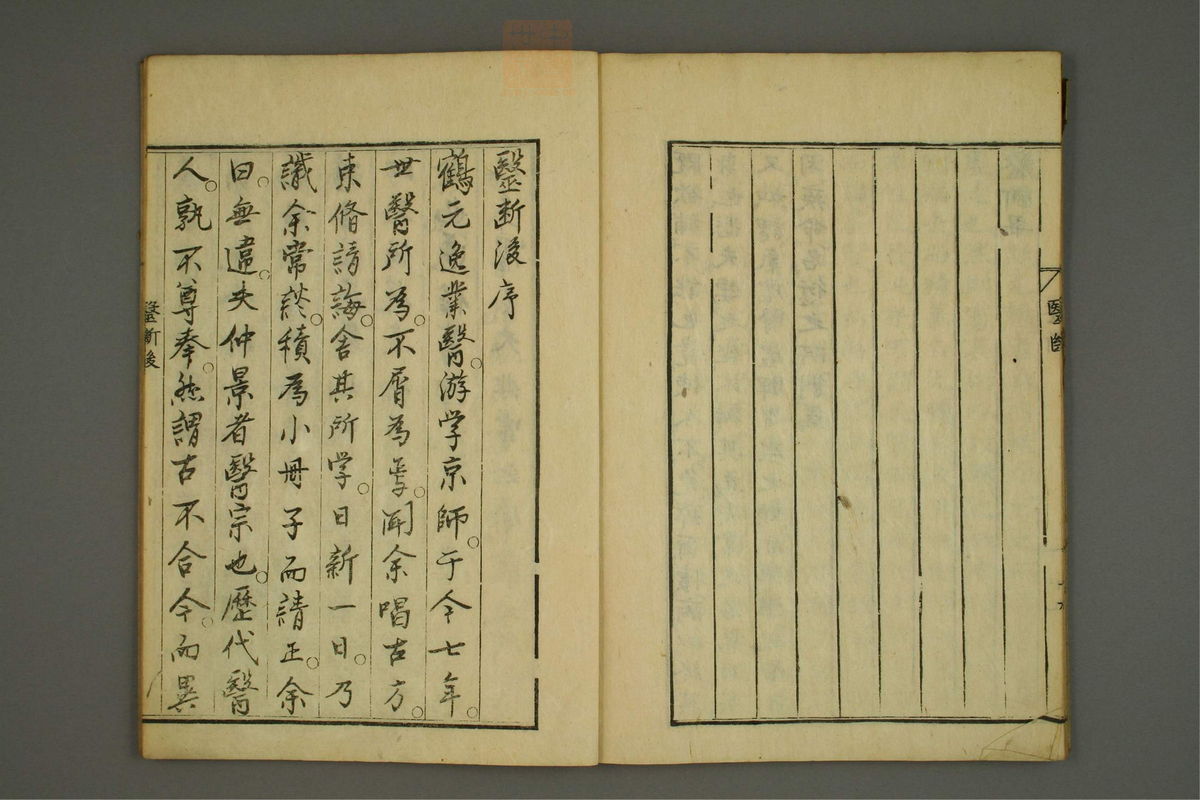 醫断後序
鶴元逸業醫。游学京師。于今七年。
世醫所為。不屑為焉。聞余唱古方。
束脩請誨。舍其所学。日新一日。乃
識余常談。積為小冊子而請正。余
曰。無違。夫仲景者醫宗也。歷代醫
人。孰不尊奉。然謂古不合今。而異
醫斷後